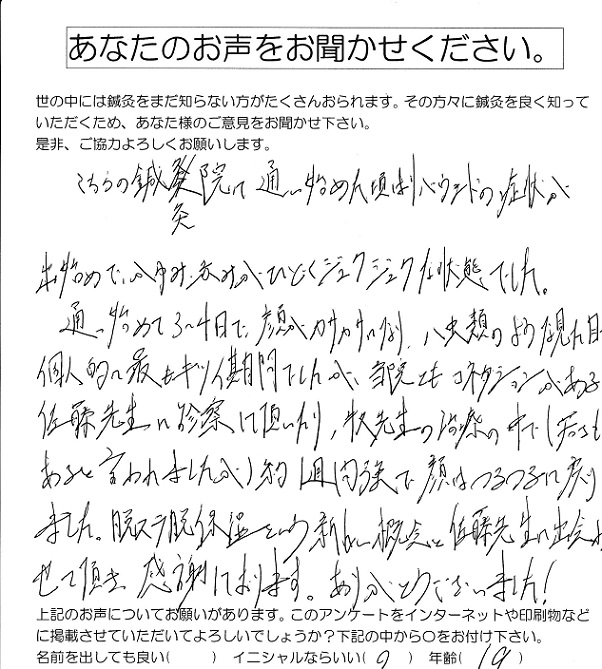 あなたのお声をお聞かせください。
世の中には鍼灸をまだ知らない方がたくさんおられます。その方々に鍼灸を良く知って
いただくため、あなた様のご意見をお聞かせ下さい。
是非、ご協力よろしくお願いします。
こちらの鍼灸院に通い始めた頃はリバウンドの症状が
出始めで、かゆみ、赤みがひどくジュクジュクな状態でした。
通い始めて3〜4日で、顔がカサカサになり、ハ虫類のような見た目
個人的に最もキツイ期間でしたが、当院ともコネクションがある
佐藤先生に診察して頂いたり、牧先生の治療の中で(若さも
あると言われましたが)約1週間強で顔はつるつるに戻り
ました。脱ステ脱保湿という新しい概念と佐藤先生に出会わ
せて頂き、感謝しております。ありがとうございました!
上記のお声についてお願いがあります。このアンケートをインターネットや印刷物など
に掲載させていただいてよろしいでしょうか？下記の中から○をお付け下さい。
名前を出しても良い( ) イニシャルならいい( ) 年齢( 19 )